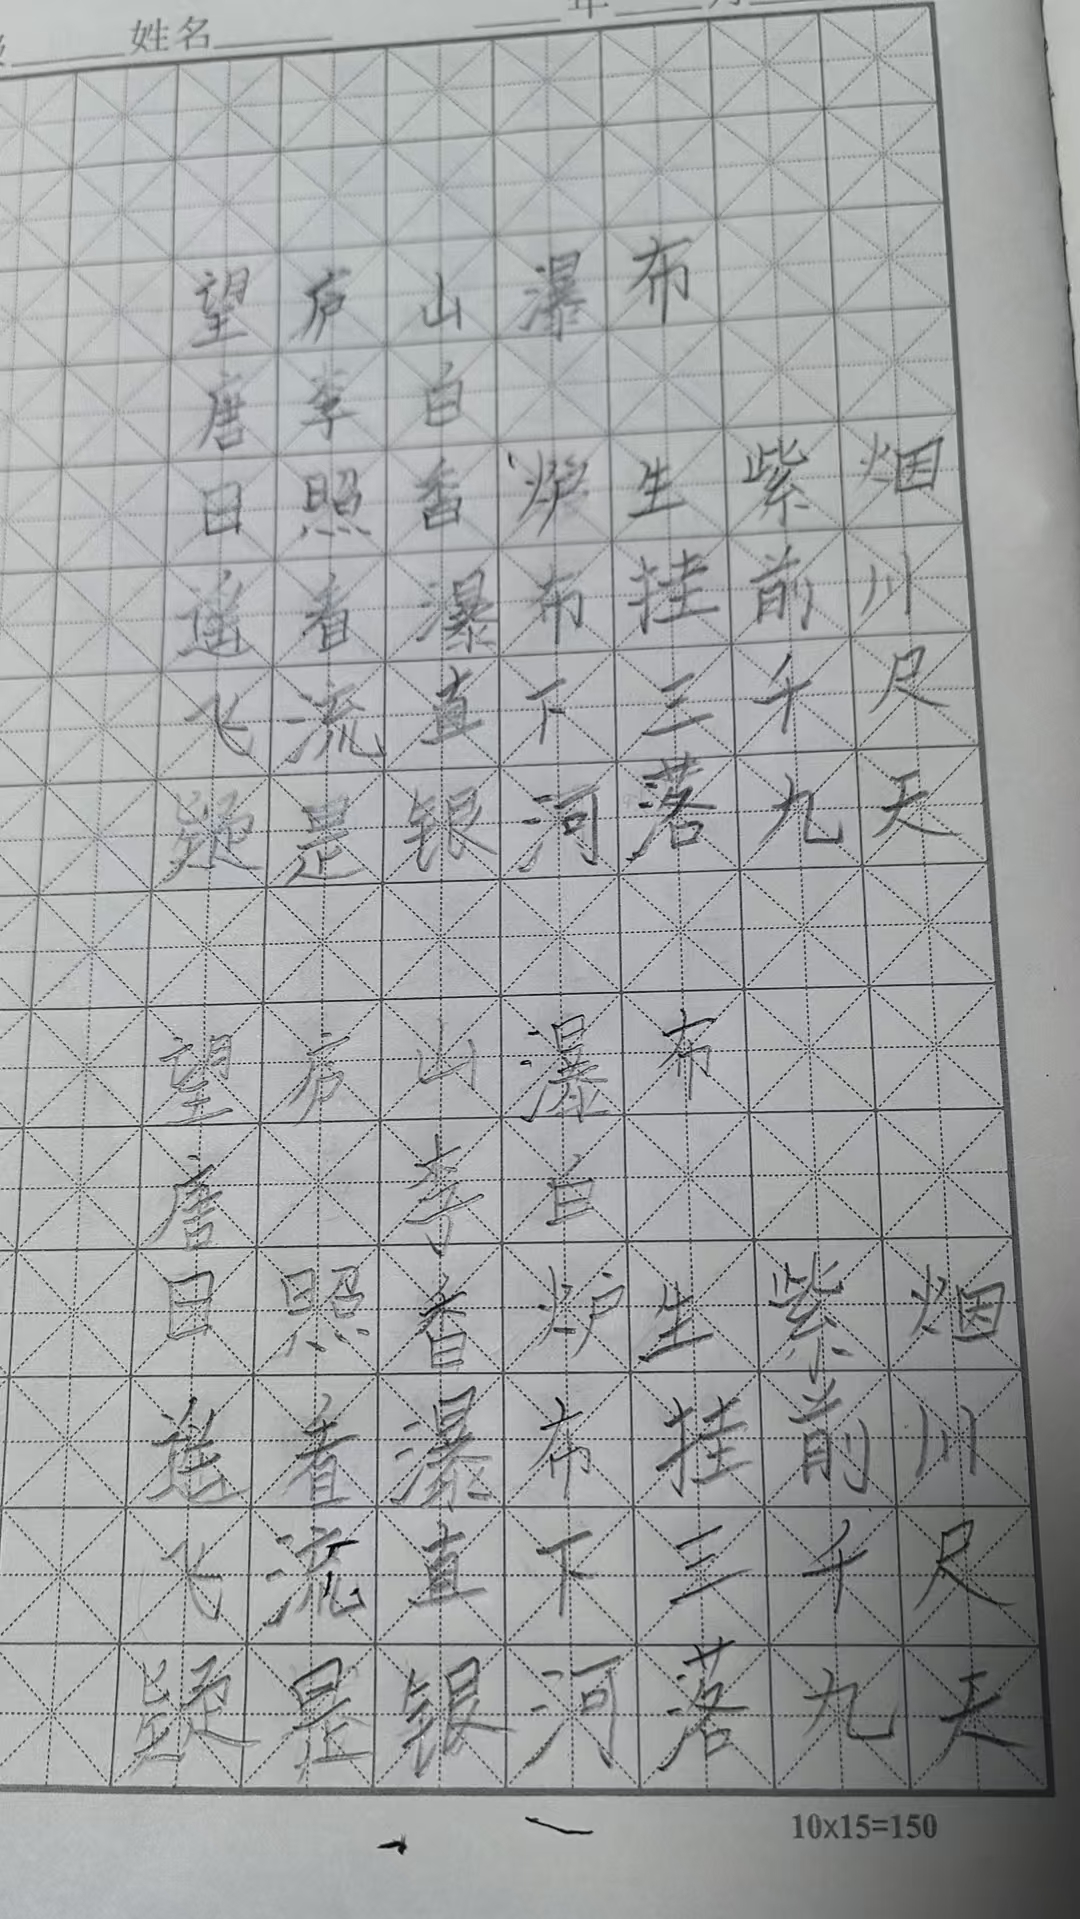 姓名 年 月
望庐山瀑布
唐李白
日照香炉生紫烟
遥看瀑布挂前川
飞流直下三千尺
疑是银河落九天
望庐山瀑布
唐 李白
日照香炉生紫烟
遥看瀑布挂前川
飞流直下三千尺
疑是银河落九天
10×15=150